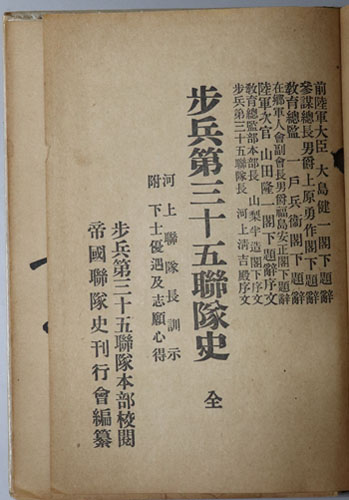 前陸軍大臣 大島健一閣下題辭
參謀總長男爵上原勇作閣下題辭
敎育總監 一戶兵衞閣下題辭
在鄕軍人會副會長男爵福島安正閣下題辭
陸軍次官 山田隆一閣下題辭序文
敎育總監部本部長 山梨半造閣下序文
步兵第三十五聯隊長 河上淸吉殿序文
步兵第三十五聯隊史 全
河上聯隊長訓示
附 下士優遇及志願心得
步兵第三十五聯隊本部校閱
帝國聯隊史刊行會編纂